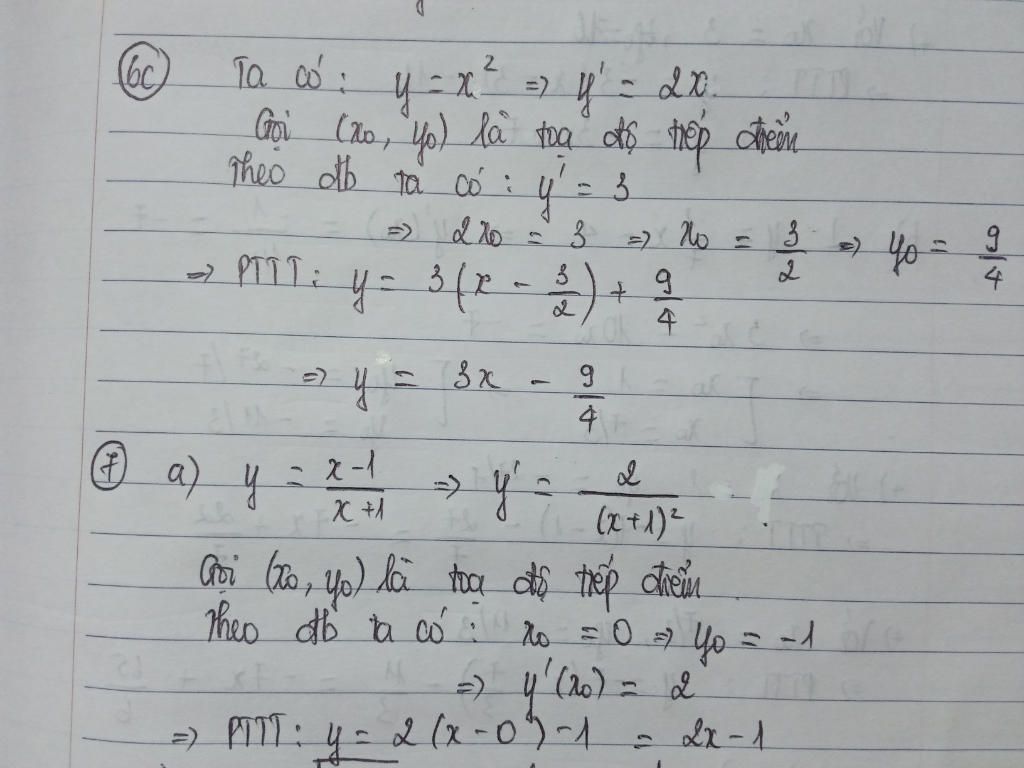 6c Ta có: y = x² => y' = 2x.
Gọi (x₀, y₀) là toạ độ tiếp điểm
Theo đb ta có: y' = 3
=> 2x₀ = 3 => x₀ = 3/2 => y₀ = 9/4
=> PTTT: y = 3(x - 3/2) + 9/4
=> y = 3x - 9/4
7 a) y = (x-1)/(x+1) => y' = 2/(x+1)²
Gọi (x₀, y₀) là toạ độ tiếp điểm
Theo đb ta có: x₀ = 0 => y₀ = -1
=> y'(x₀) = 2
=> PTTT: y = 2(x-0)-1 = 2x-1